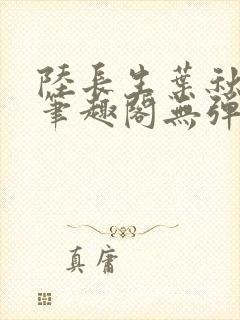 陸長生葉秋
筆趣閣無彈
真庸